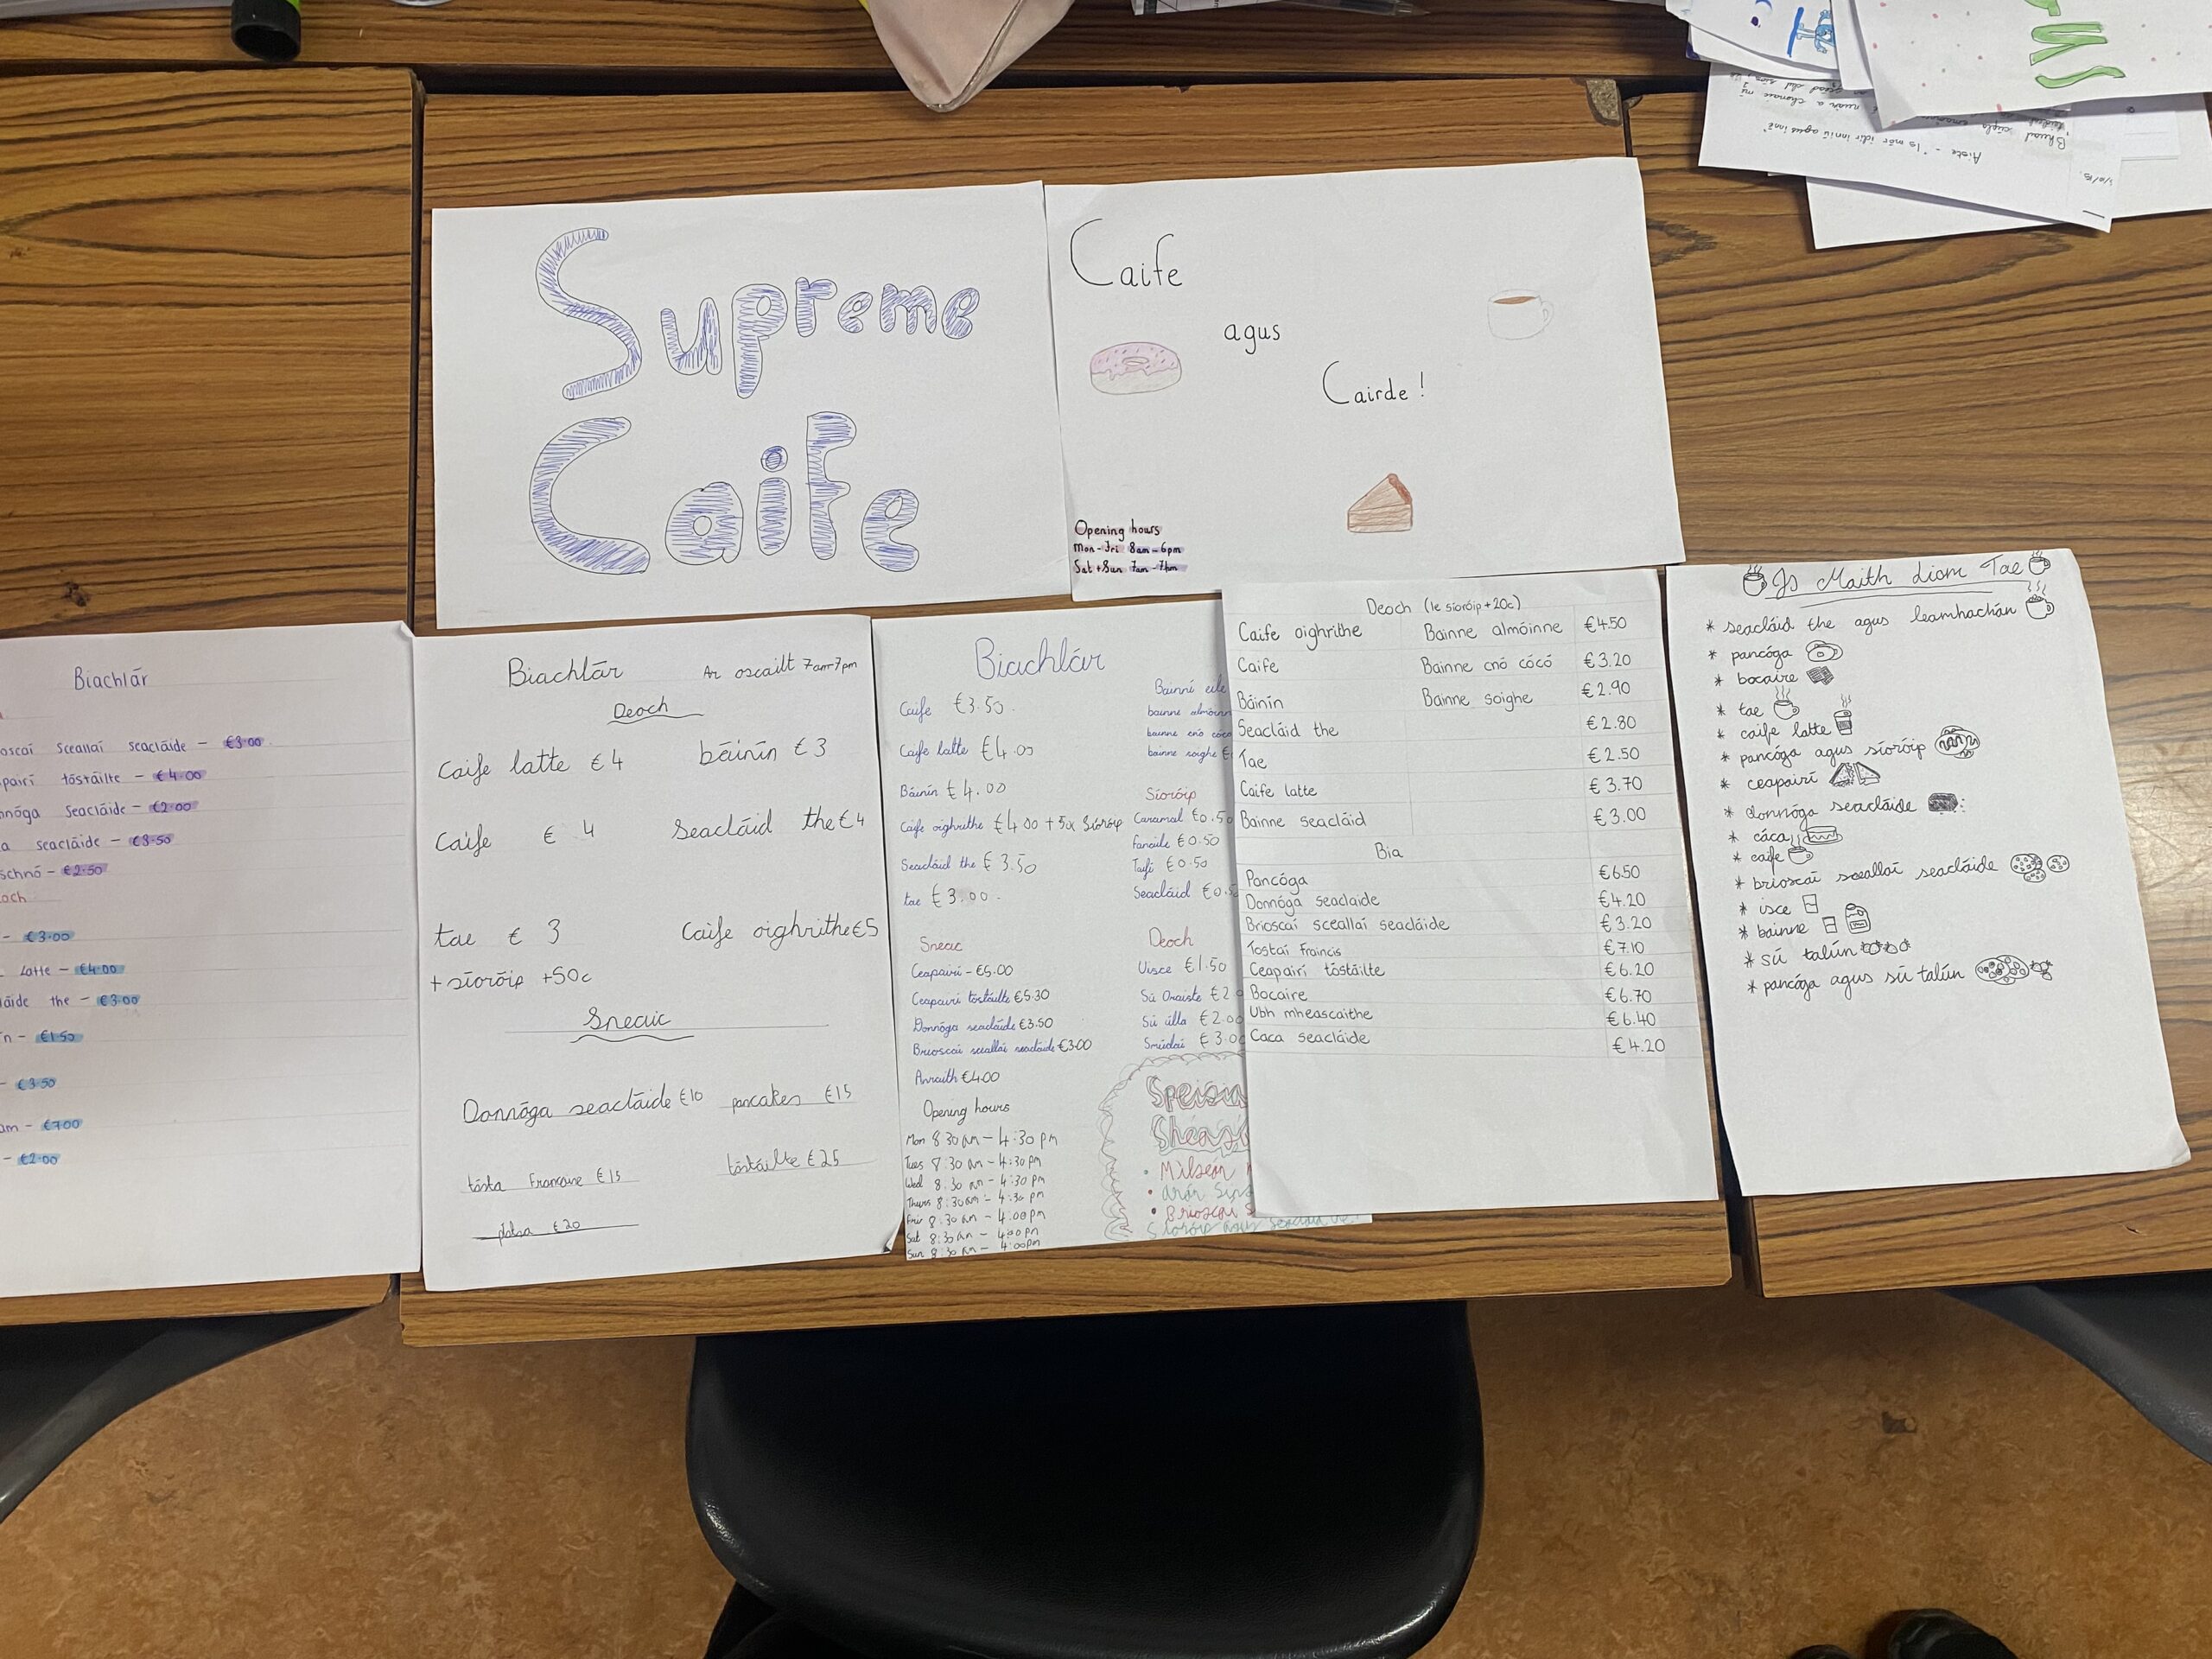 Supreme
Caife
Caife
agus
Cairde !
Opening hours
Mon-Fri 8am-6pm
Sat+Sun 7am-7pm
Aiste - "Is mór idir inniú agus inné"
Biachlár
sceallaí seacláide - €3.00
tóstáilte - €4.00
seacláide - €2.00
seacláide - €3.50
- €2.50
- €3.00
Latte - €4.00
the - €3.00
- €1.50
- €3.50
- €7.00
- €2.00
Biachlár Ar oscailt 7am-7pm
Deoch
Caife latte €4 báinín €3
Caife € 4 Seacláid the €4
tae € 3 Caife oighrithe €5
+ síoróip +50c
Sneaic
Donnóga seacláide €10 pancakes €15
tósta Francise €15 tóstáilte €25
€20
Biachlár
Caife €3.50.
Caife latte €4.00
Báinín €4.00
Caife oighrithe €4.00 + 50c Síoróip
Seacláid the €3.50
tae €3.00.
Bainní eile
bainne
bainne cnó cócó
bainne soighe
Síoróip
Caramal €0.50
Fanaile €0.50
Taifi €0.50
Seacláid
Sneaic
Ceapairí - €5.00
Ceapairí tóstáilte €5.30
Donnóga seacláide €3.50
Brioscaí sceallaí seacláide €3.00
Anraith €4.00
Deoch
Uisce €1.50
Sú Oraiste
Sú úlla €2.00
Smúdaí €3.00
Opening hours
Mon 8:30 am - 4:30 pm
Tues 7:30 am - 4:30 pm
Wed 8:30 am - 4:30 pm
Thurs 8:30am - 4:30 pm
Fri 8:30 am - 4:00 pm
Sat 8:30am - 4:00 pm
Sun 8:30 am - 4:00pm
Milseán
arán
Brioscaí
Síoróip agus
Deoch (le síoróip +20c)
Caife oighrithe Bainne almóinne €4.50
Caife Bainne cnó cócó €3.20
Báinín Bainne soighe €2.90
Seacláid the €2.80
Tae €2.50
Caife latte €3.70
Bainne seacláid €3.00
Bia
Pancóga €6.50
Donnóga seaclaide €4.20
Brioscaí sceallaí seacláide €3.20
Tostaí Francis €7.10
Ceapairí tóstáilte €6.20
Bocaire €6.70
Ubh mheascaithe €6.40
Caca seacláide €4.20
Is Maith Liom Tae
* seacláid the agus leamhachán
* pancóga
* bocaire
* tae
* caife latte
* pancóga agus síoróip
* ceapairí
* donnóga seacláide
* cáca
* caife
* brioscaí sceallaí seacláide
* isce
* bainne
* sú talún
* pancóga agus sú talún